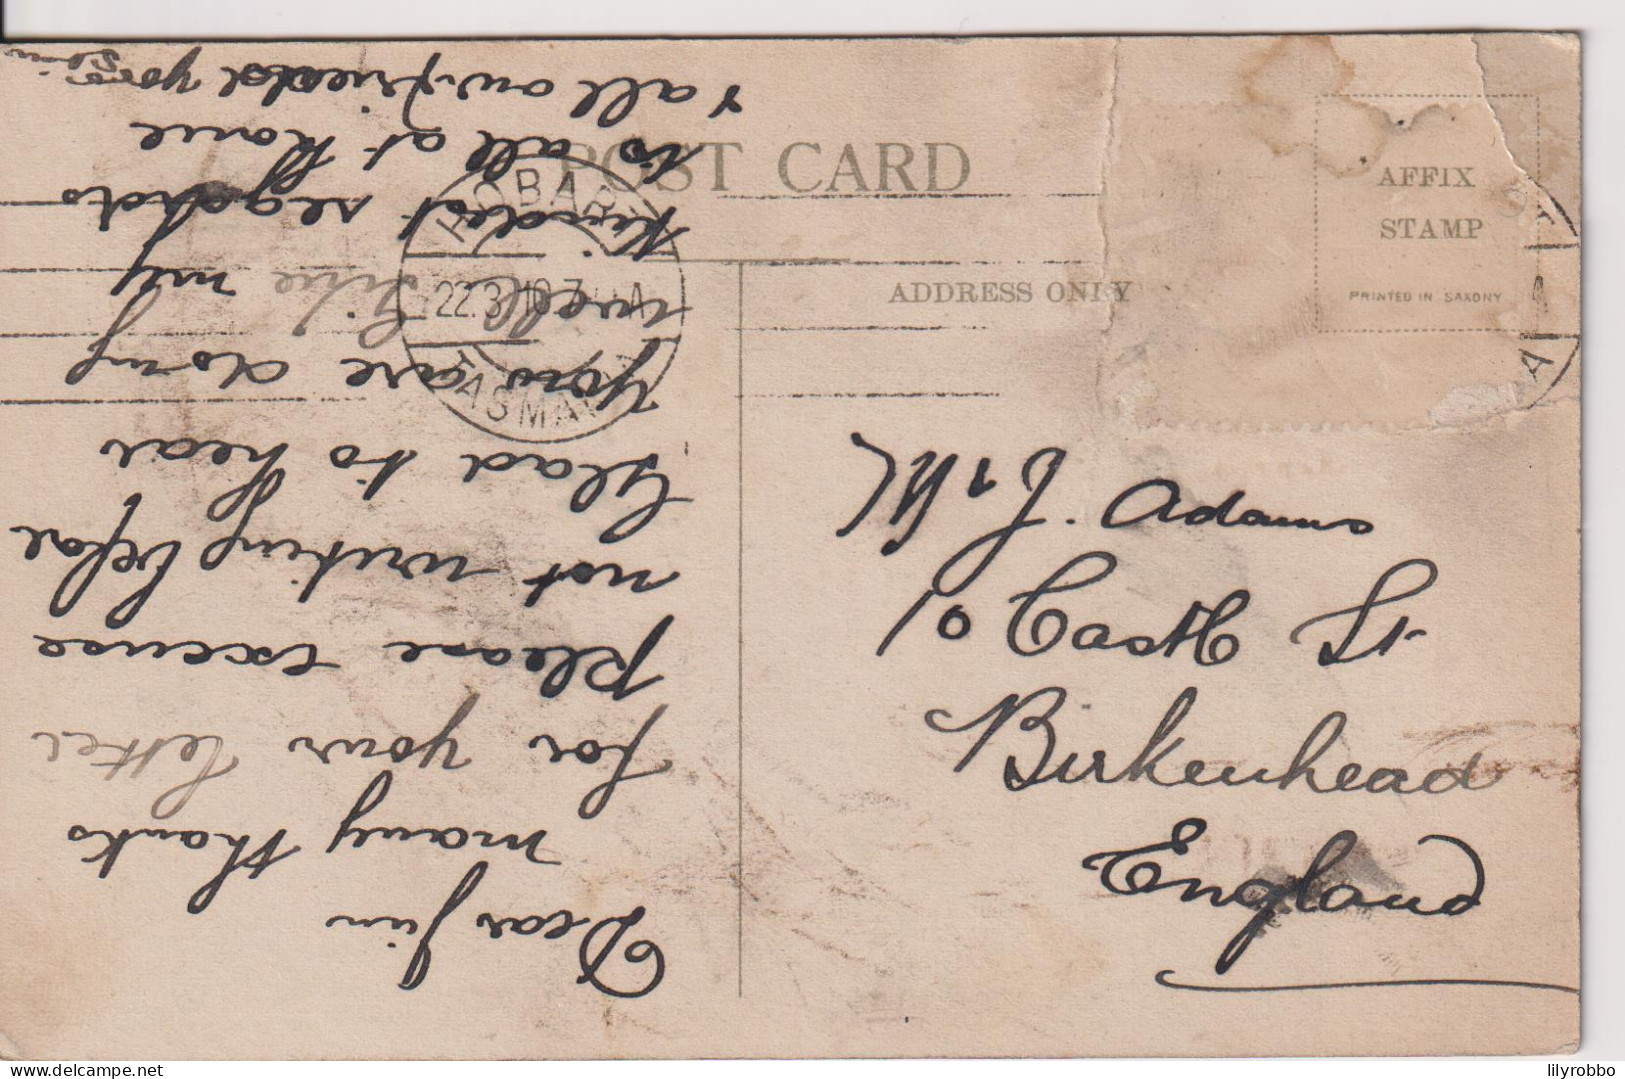 POST CARD
AFFIX
STAMP
PRINTED IN SAXONY
ADDRESS ONLY
HOBART
22.3.10.7
TASMA
Mr J. Adams
10 Castle St
Birkenhead
England
Dear Jim
many thanks
for your letter
please excuse
not writing before
Glad to hear
you are doing
well Give my
kindest regards
to all at home
& all our friends your
lilyrobbo